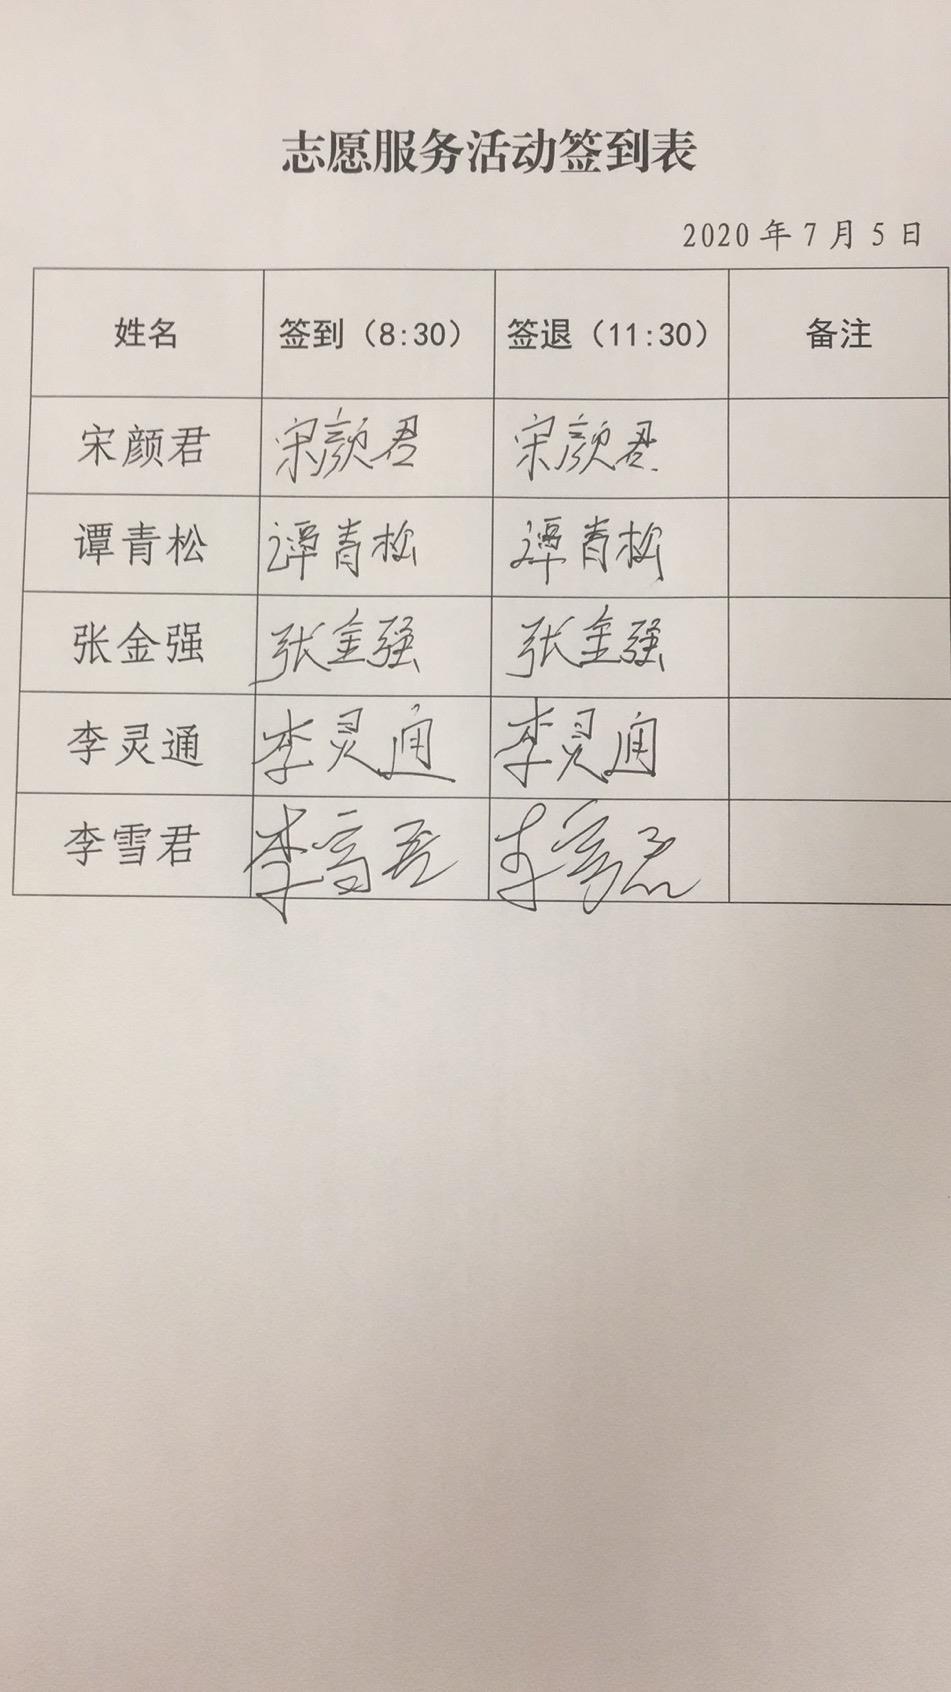 志愿服务活动签到表
2020年7月5日
姓名 签到（8:30） 签退（11:30） 备注
宋颜君 宋颜君 宋颜君
谭青松 谭青松 谭青松
张金强 张金强 张金强
李灵通 李灵通 李灵通
李雪君 李雪君 李雪君